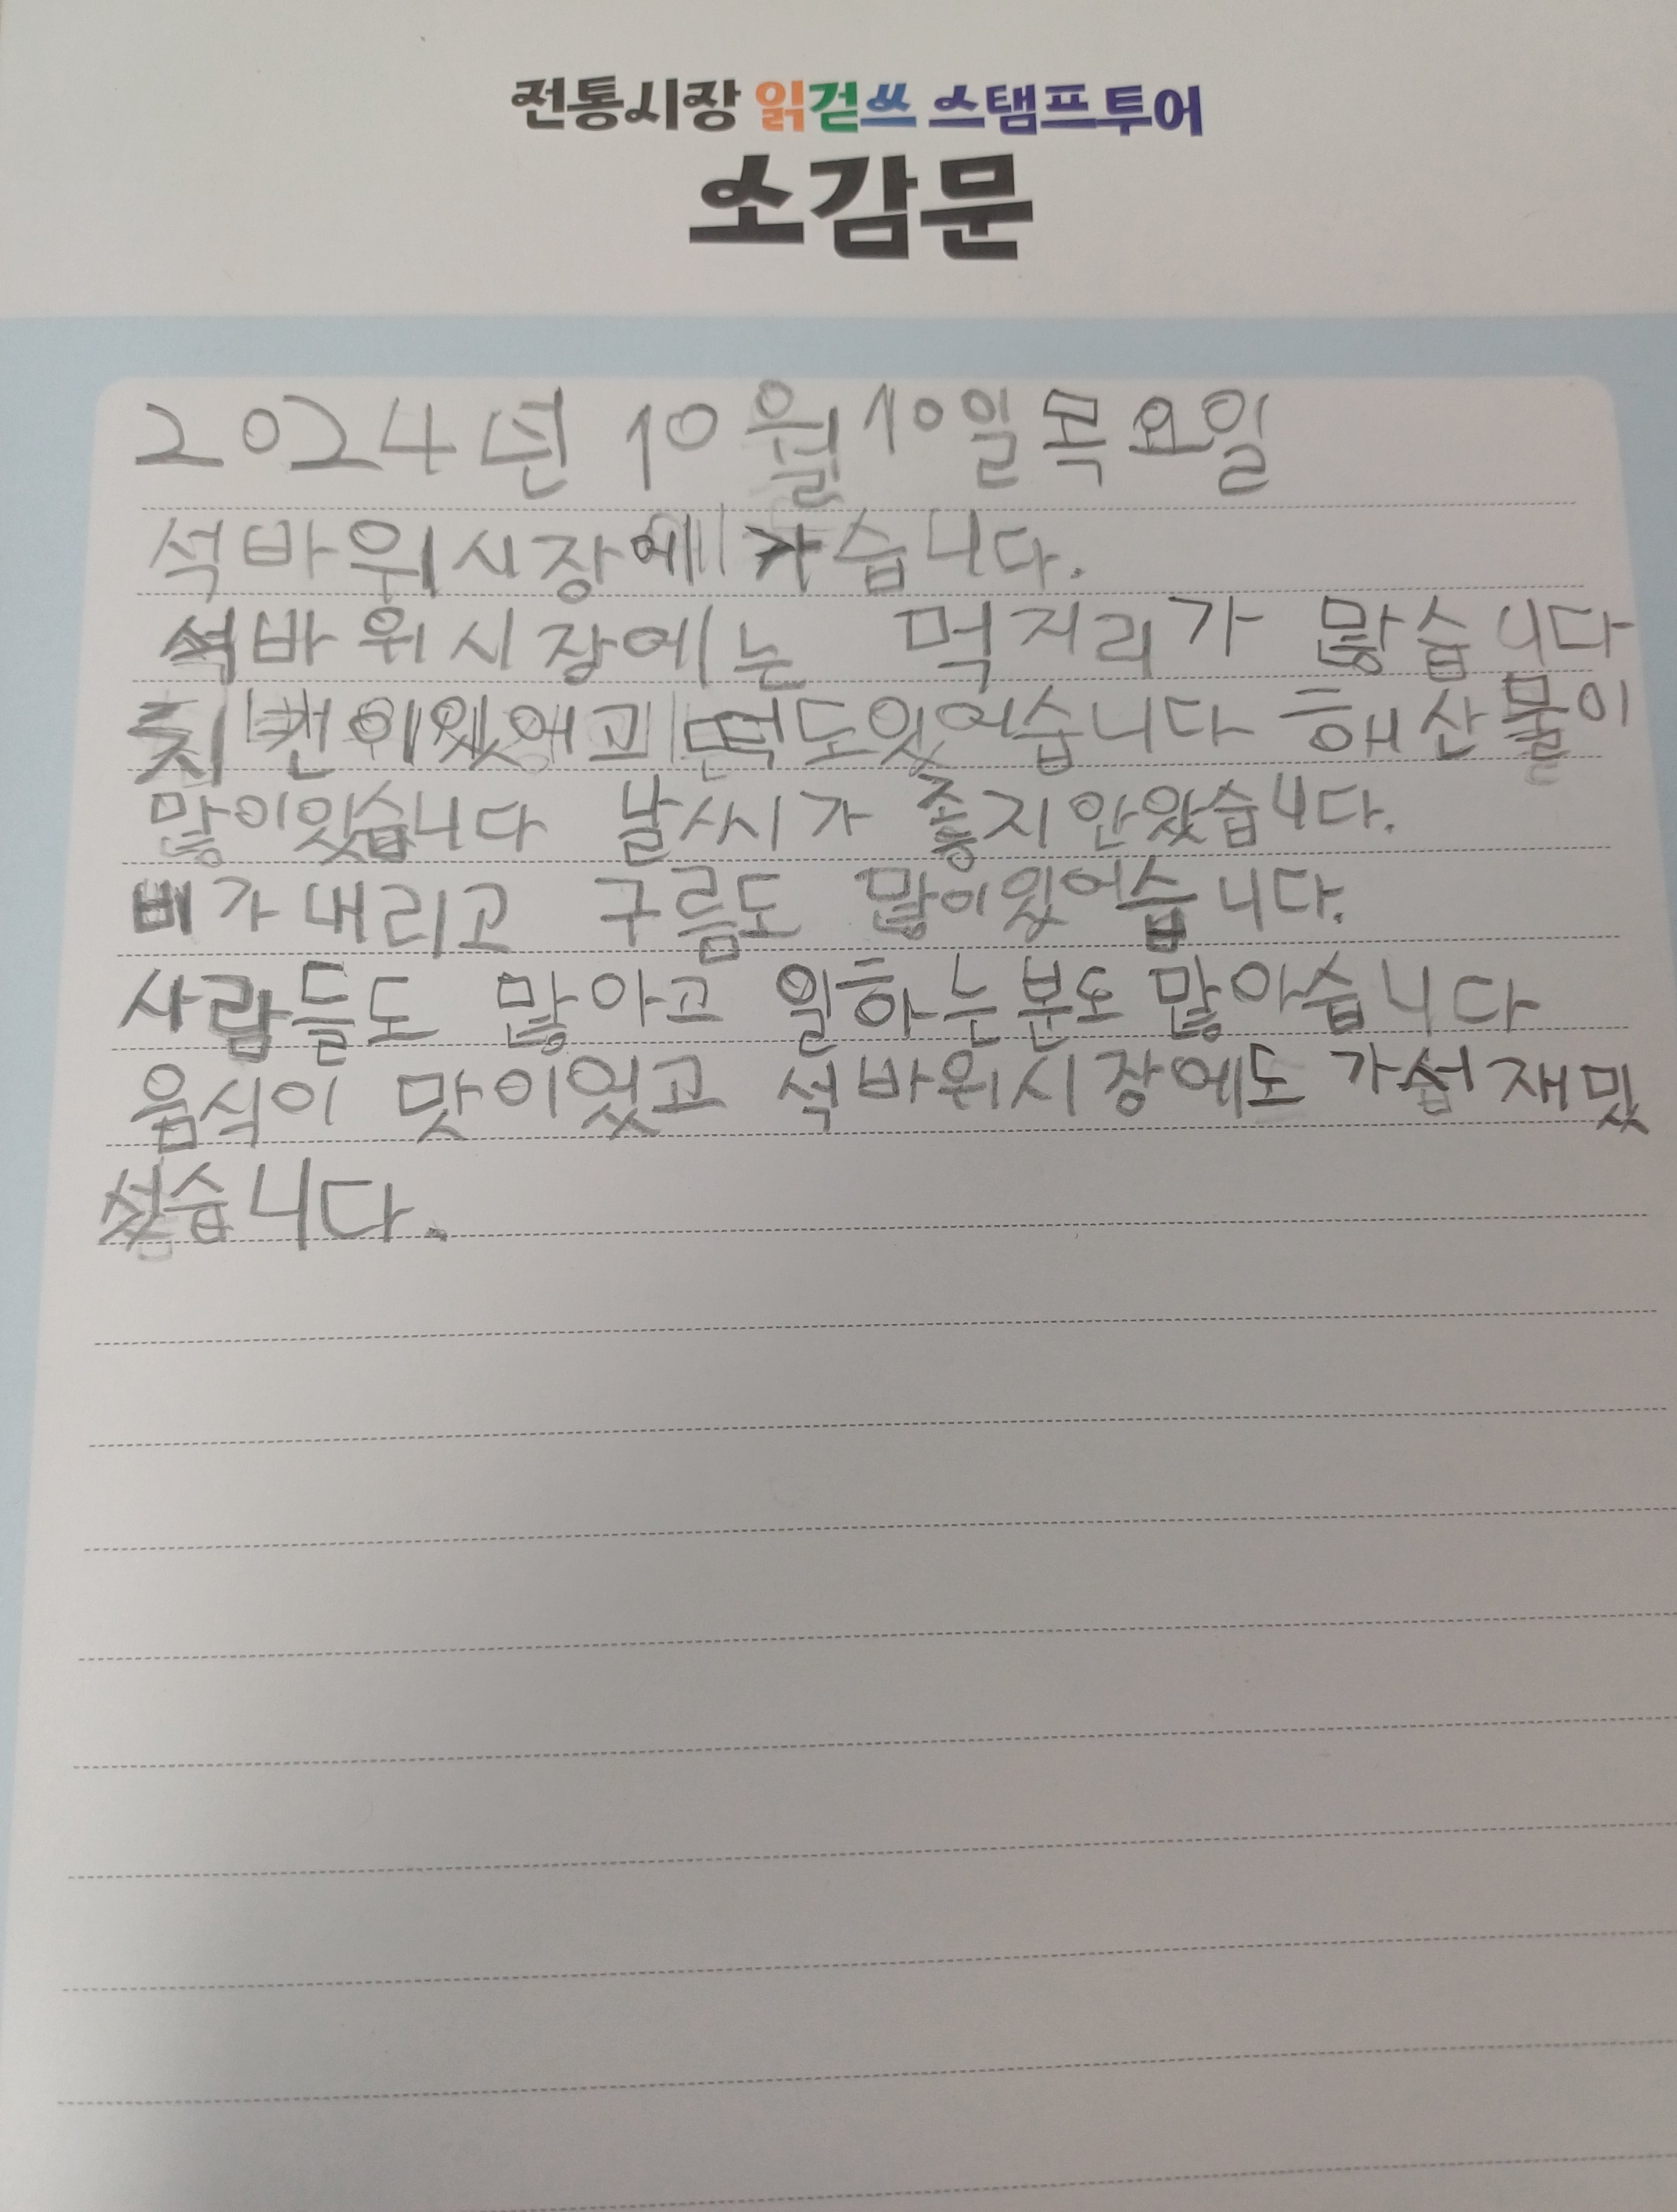 전통시장 읽걷쓰 스탬프투어
소감문
2024년 10월 10일 목요일
석바위시장에 가습니다.
석바위시장에는 먹거리가 많습니다
치킨이있었고 떡도있어습니다 해산물이
많이있습니다 날씨가 좋지안왔습니다.
비가내리고 구름도 많이있어습니다.
사람들도 많아고 일하는분도 많아습니다
음식이 맛이었고 석바위시장에도 가섭 재밌
섰습니다.